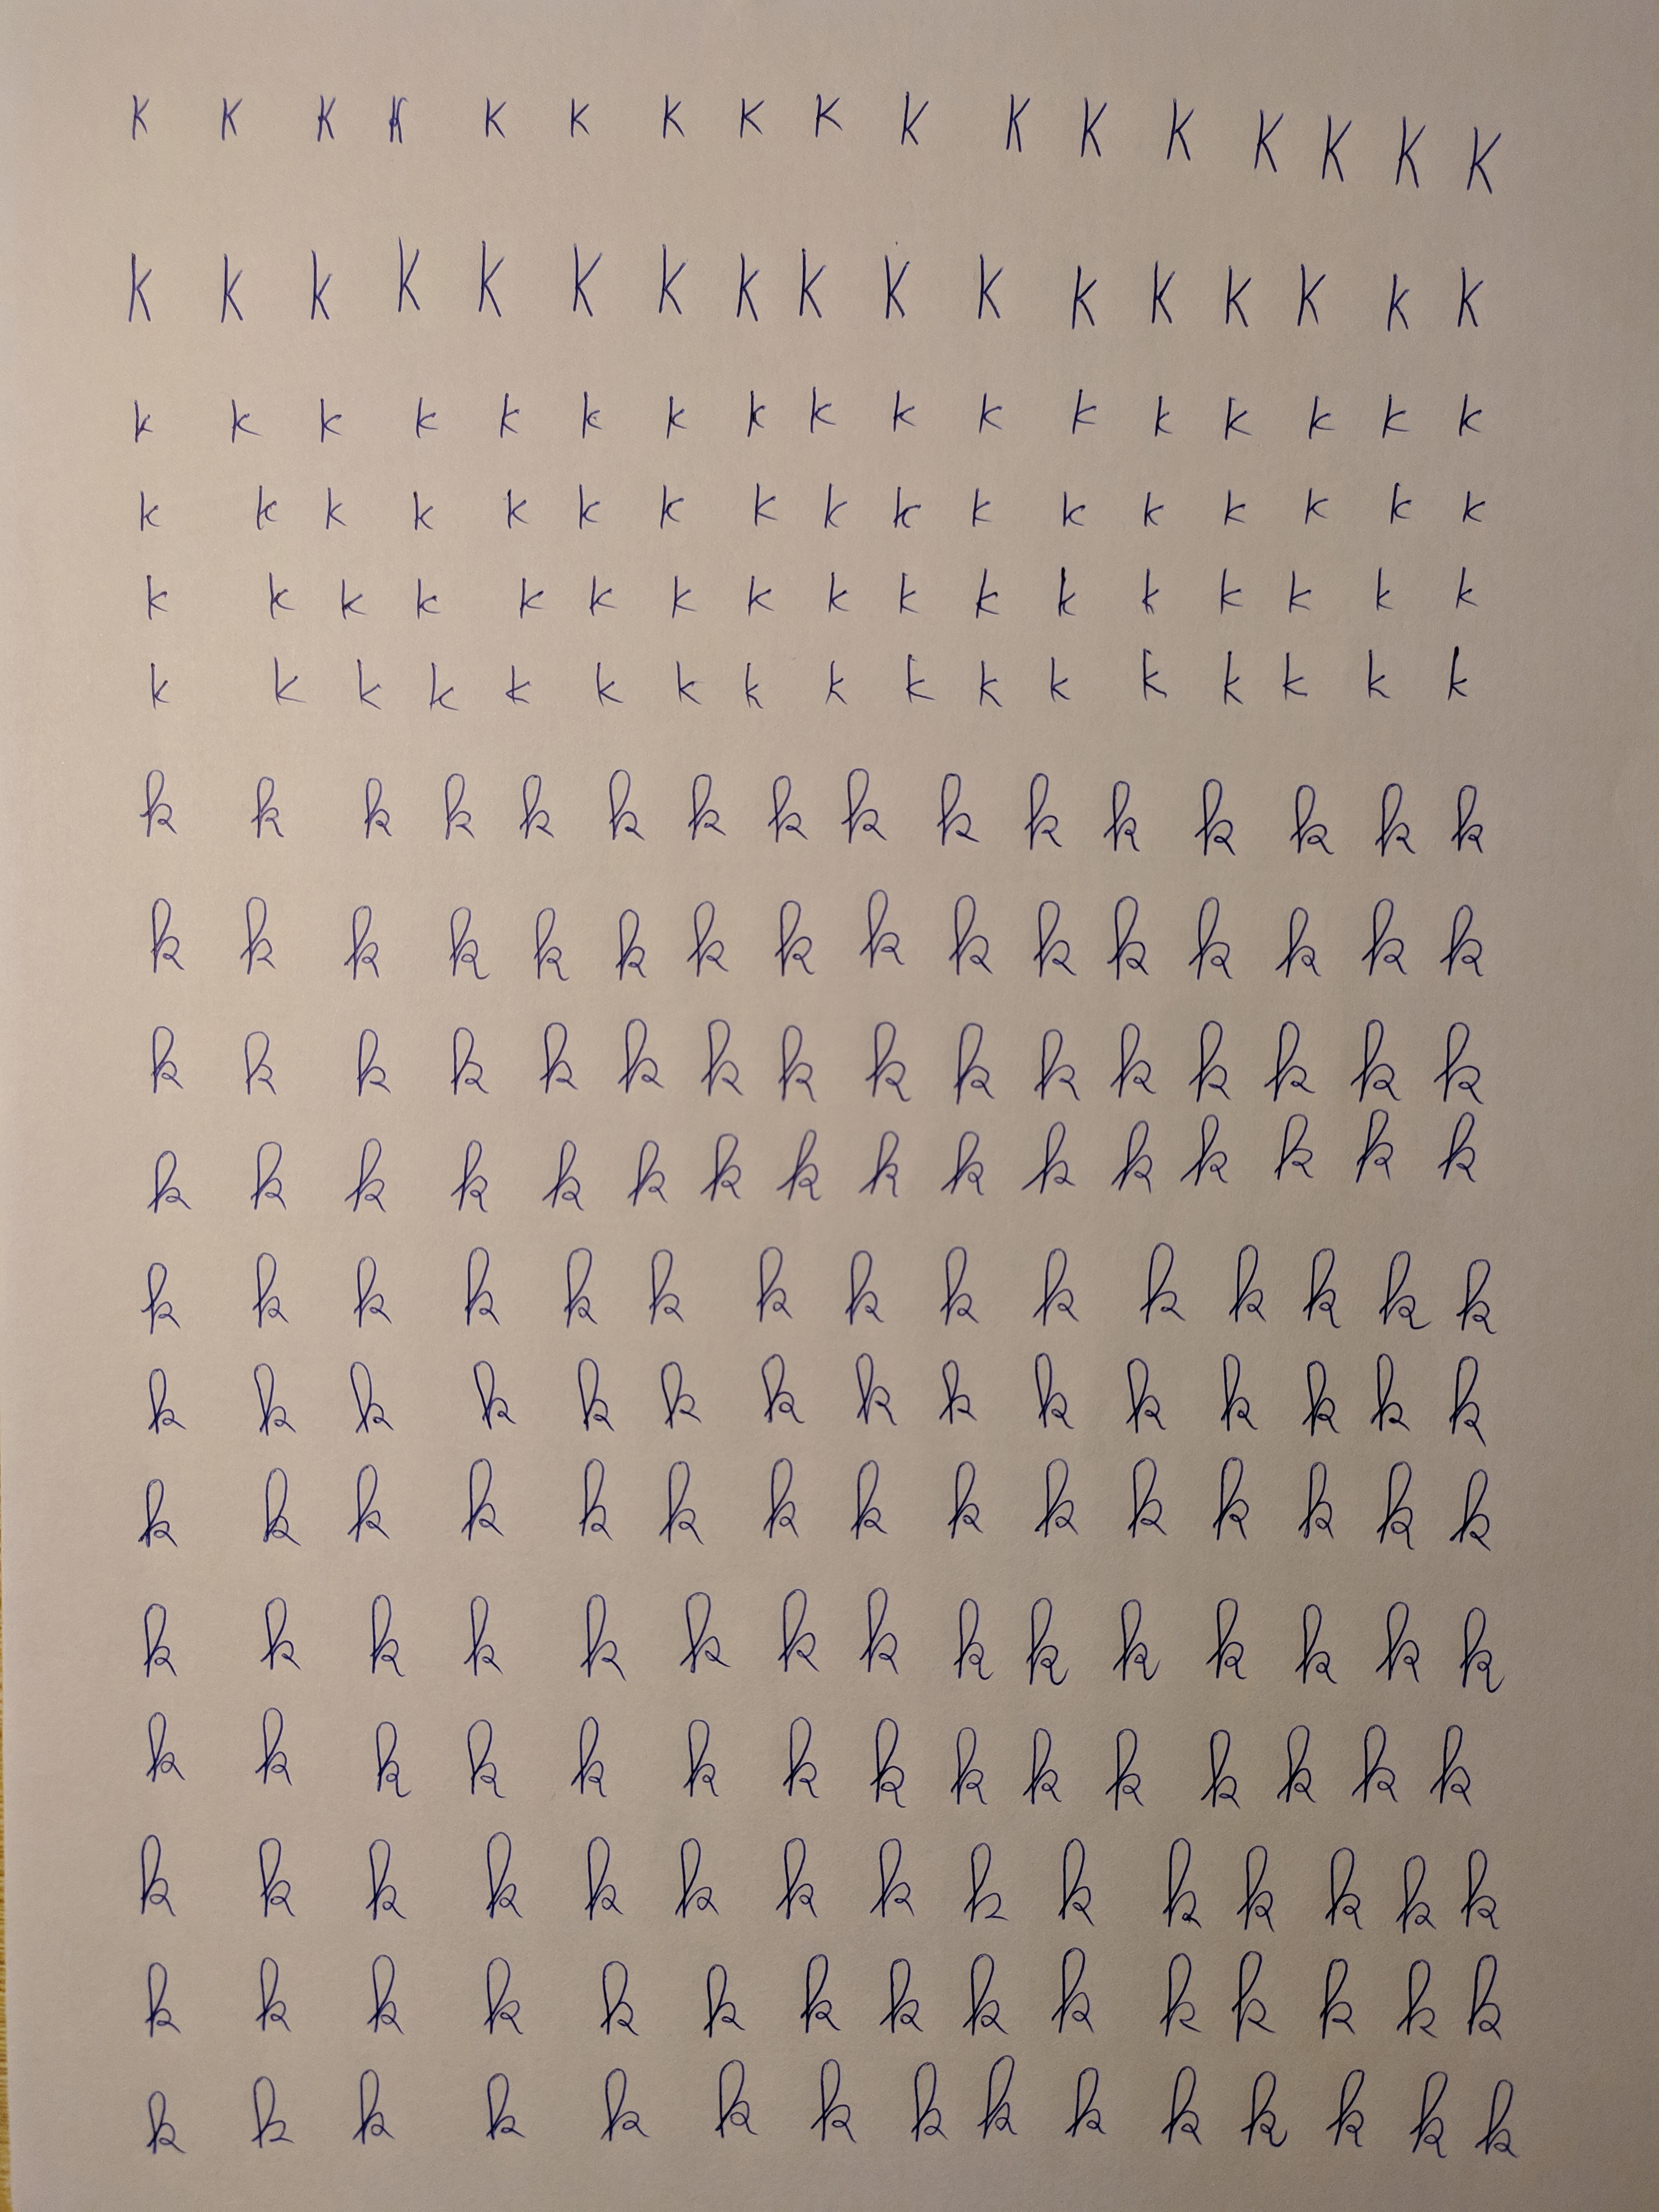 K K K K K K K K K K K K K K K K K
K K K K K K K K K K K K K K K K K
k k k k k k k k k k k k k k k k k
k k k k k k k k k k k k k k k k k
k k k k k k k k k k k k k k k k k
k k k k k k k k k k k k k k k k k
k k k k k k k k k k k k k k k k
k k k k k k k k k k k k k k k k
k k k k k k k k k k k k k k k k
k k k k k k k k k k k k k k k k
k k k k k k k k k k k k k k k
k k k k k k k k k k k k k k k
k k k k k k k k k k k k k k k
k k k k k k k k k k k k k k k
k k k k k k k k k k k k k k k
k k k k k k k k k k k k k k k
k k k k k k k k k k k k k k k
k k k k k k k k k k k k k k k